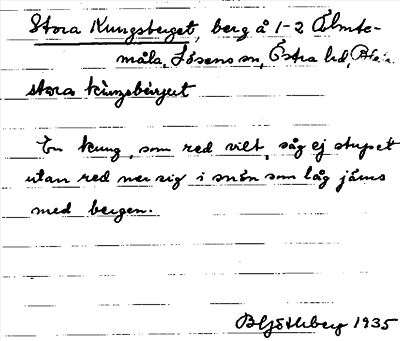 Stora Kungsberget, berg å 1-2 Älmte-
måla, Lösens sn, Östra hd,
stora kùngsbèrget
En kung, som red vilt, såg ej stupet
utan red ner sig i snön som låg jäms
med bergen.
1935